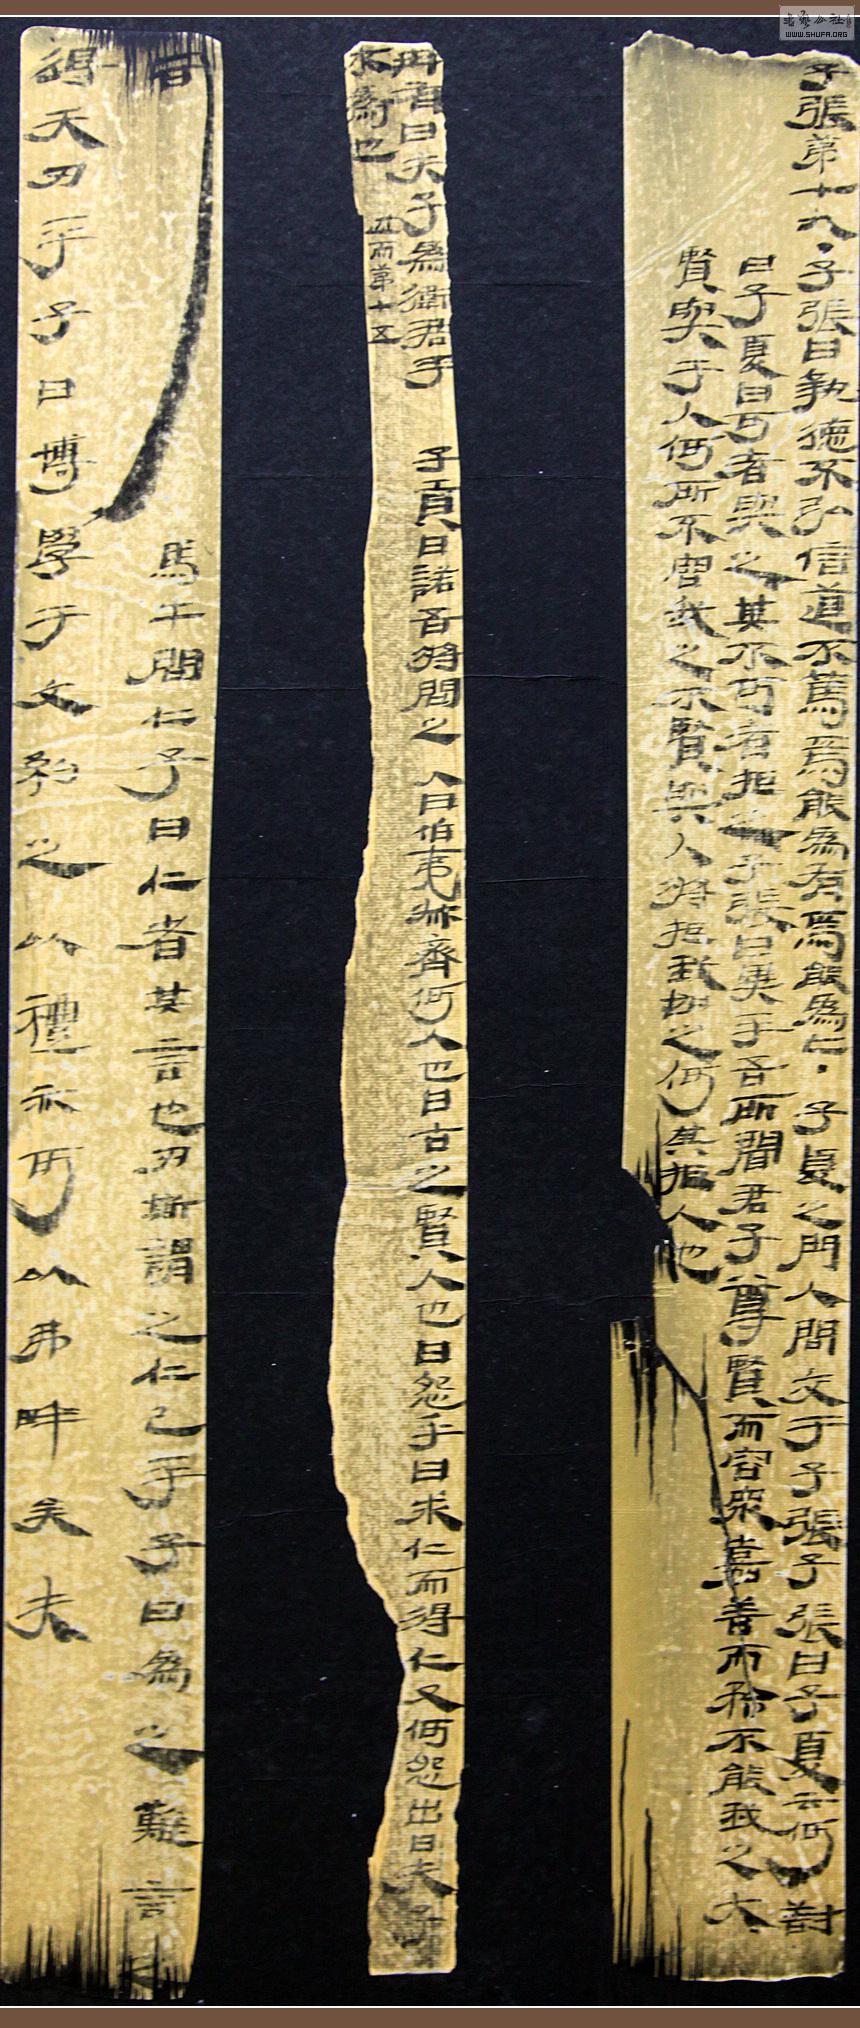 書藝公社
WWW.SHUFA.ORG
子張第十九·子張曰執德不弘信道不篤焉能為有焉能為亡·子夏之門人問交于子張子張曰子夏云何對
曰子夏曰可者與之其不可者拒之子張曰異乎吾所聞君子尊賢而容眾嘉善而矜不能我之大
賢與于人何所不容我之不賢與人將拒我如之何其拒人也
冉有曰夫子為衛君乎 子貢曰諾吾將問之 入曰伯夷叔齊何人也曰古之賢人也曰怨乎曰求仁而得仁又何怨出曰夫子
不為也 而第十五
馬牛問仁子曰仁者其言也刃斯謂之仁已乎子曰為之難言之
得无刃乎子曰博學于文約之以禮亦可以弗畔矣夫